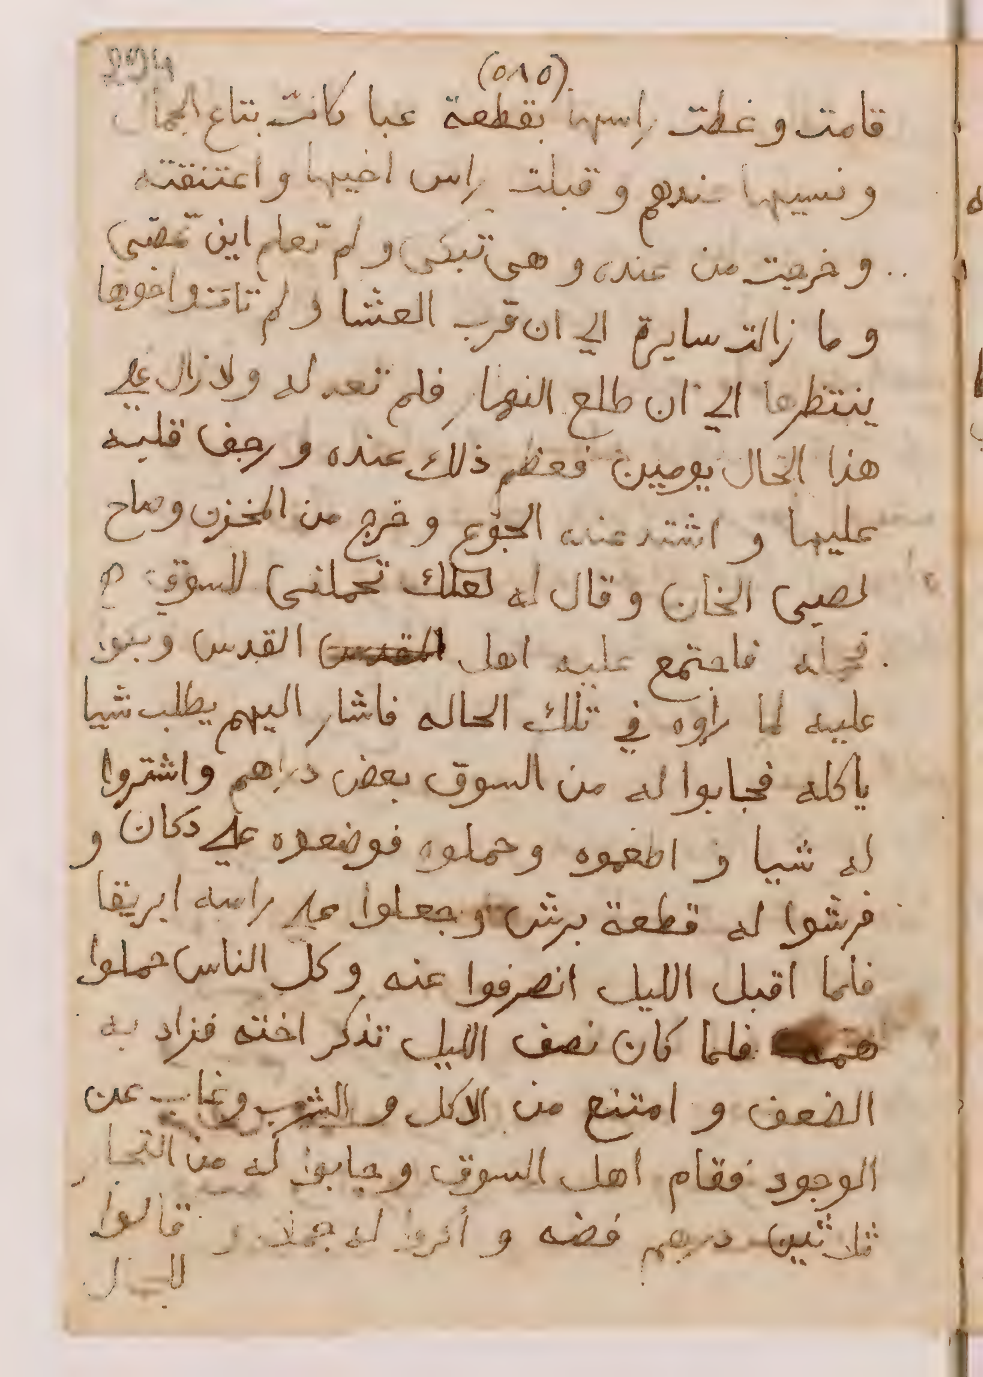 294
(٥٨٥)
قامت وغطت راسها بقطعة عبا كانت بتاع الجمال
ونسيها عندهم وقبلت راس اخيها واعتنقته
وخرجت من عنده وهى تبكى ولم تعلم اين تمضى
وما زالت سايرة الي ان قرب العشا ولم تات واخوها
ينتظرها الي ان طلع النهار فلم تعد له ولا زال علي
هذا الحال يومين فعظم ذلك عنده ورجف قلبه
عليها و اشتد عنده الجوع وخرج من المخزن وصاح
لصبى الخان وقال له لعلك تحملنى للسوق
فحمله فاجتمع عليه اهل القدس وبكوا
عليه لما راوه في تلك الحاله فاشار اليهم يطلب شيا
ياكله فجابوا له من السوق بعض دراهم واشتروا
له شيا و اطعموه وحملوه فوضعوه علي دكان و
فرشوا له قطعة برش وجعلوا علي راسه ابريقا
فلما اقبل الليل انصرفوا عنه وكل الناس حملوا
همه فلما كان نصف الليل تذكر اخته فزاد به
الضعف و امتنع من الاكل و الشرب وغاب عن
الوجود فقام اهل السوق وجابوا له من التجار
ثلاثين درهم فضه و أكروا له جملا و قالوا
للجمال